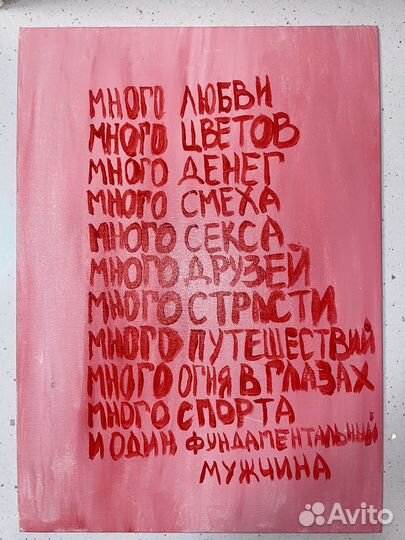 МНОГО ЛЮБВИ
МНОГО ЦВЕТОВ
МНОГО ДЕНЕГ
МНОГО СМЕХА
МНОГО СЕКСА
МНОГО ДРУЗЕЙ
МНОГО СТРАСТИ
МНОГО ПУТЕШЕСТВИЙ
МНОГО ОГНЯ В ГЛАЗАХ
МНОГО СПОРТА
И ОДИН ФУНДАМЕНТАЛЬНЫЙ
МУЖЧИНА
Avito